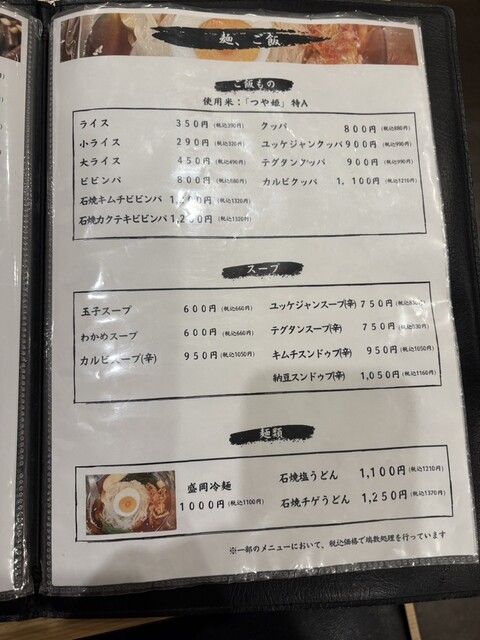 麺、ご飯
ご飯もの
使用米：「つや姫」特A
ライス 350円(税込390円)
小ライス 290円(税込320円)
大ライス 450円(税込490円)
ビビンバ 800円(税込880円)
石焼キムチビビンバ 1,200円(税込1320円)
石焼カクテキビビンバ 1,200円(税込1320円)
クッパ 800円(税込880円)
ユッケジャンクッパ 900円(税込990円)
テグタンクッパ 900円(税込990円)
カルビクッパ 1,100円(税込1210円)
スープ
玉子スープ 600円(税込660円)
わかめスープ 600円(税込660円)
カルビスープ(辛) 950円(税込1050円)
ユッケジャンスープ(辛) 750円(税込830円)
テグタンスープ(辛) 750円(税込830円)
キムチスンドゥブ(辛) 950円(税込1050円)
納豆スンドゥブ(辛) 1,050円(税込1160円)
麺類
盛岡冷麺
1000円(税込1100円)
石焼塩うどん 1,100円(税込1210円)
石焼チゲうどん 1,250円(税込1370円)
※一部のメニューにおいて、税込価格で端数処理を行っています